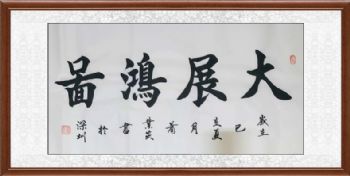 大展鴻啚
歲在己亥夏月 書於深圳